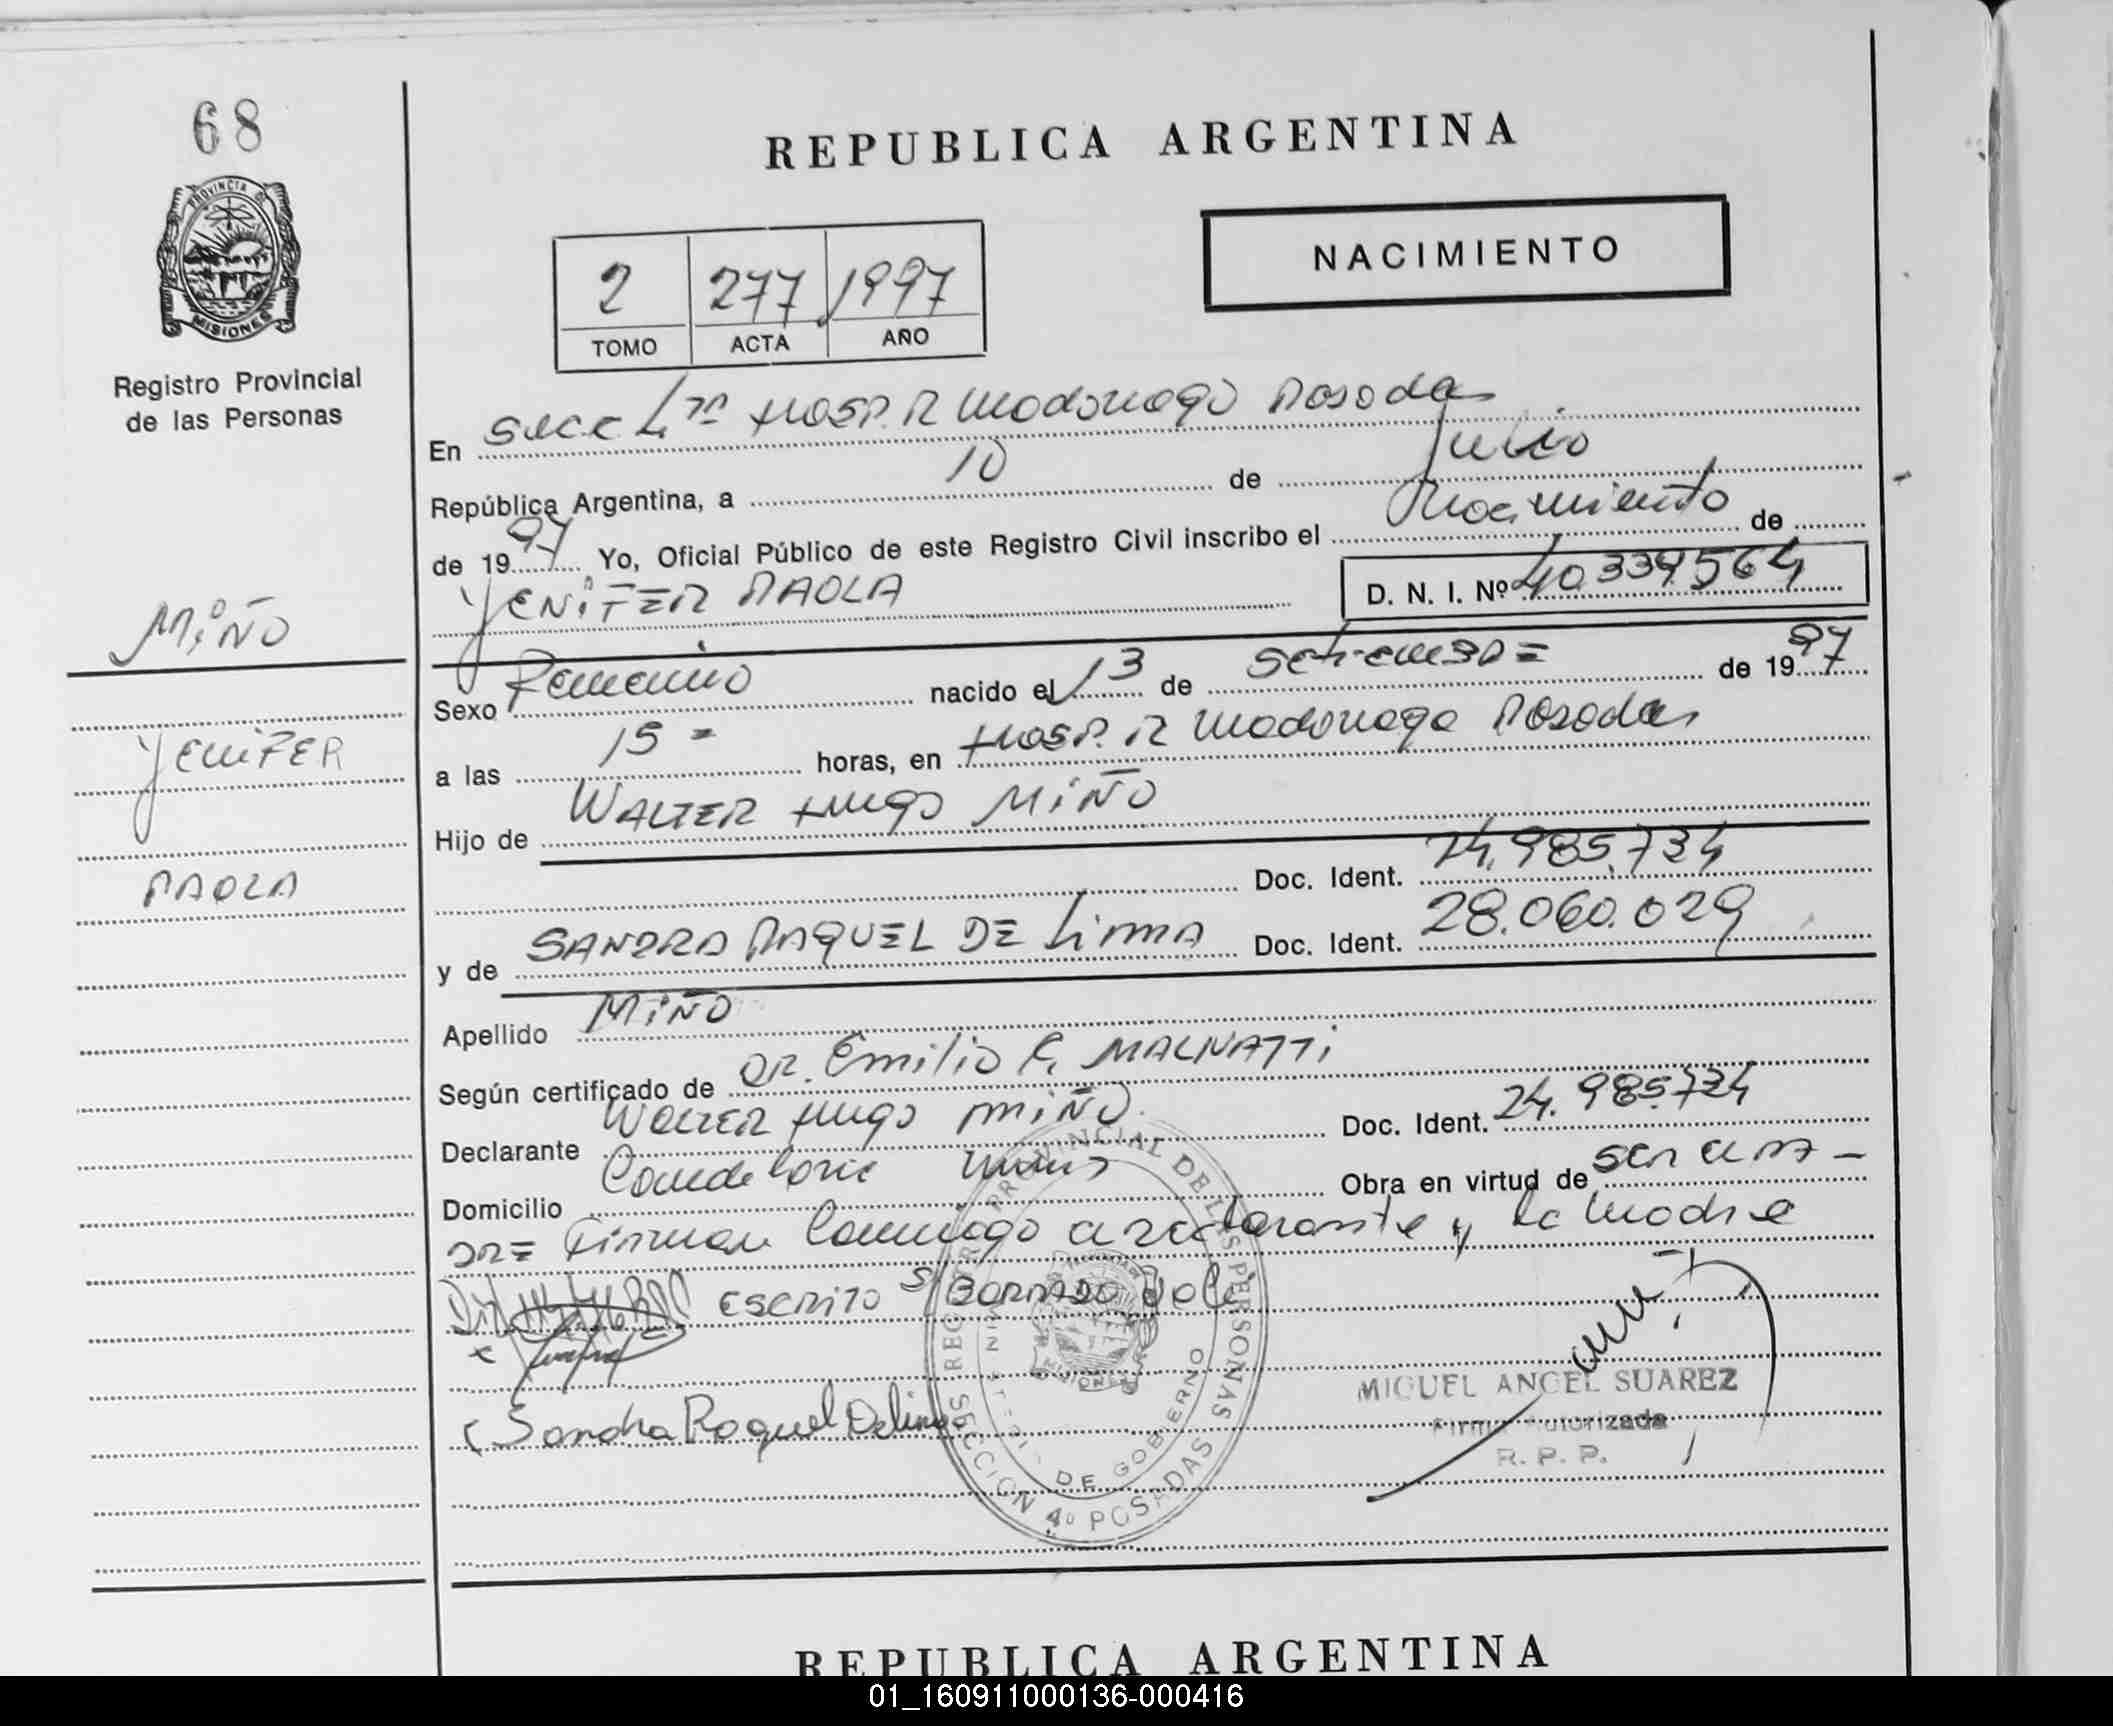 68
REPUBLICA ARGENTINA
PROVINCIA DE
MISIONES
Registro Provincial
de las Personas
NACIMIENTO
2 277 1997
TOMO ACTA AÑO
En Secc 4ta Hosp. R Madariaga Posadas
República Argentina, a 10 de Julio
de 1997 Yo, Oficial Público de este Registro Civil inscribo el Nacimiento de
YENiFER PAOLA D. N. I. Nº 40.339.564
MiÑO
YENiFER
PAOLA
Sexo Femenino nacido el 13 de Setiembre = de 1997
a las 15 = horas, en Hosp. R Madariaga Posadas
Hijo de WALTER Hugo MiÑO
Doc. Ident. 24.985.734
y de SANDRA RAQUEL DE LimA Doc. Ident. 28.060.029
Apellido MiÑO
Según certificado de DR. Emilio F. MALNATTi
Declarante WALTER Hugo MiÑO. Doc. Ident. 24.985.734
Domicilio Candelaria Mnes Obra en virtud de ser el PA-
DR= Firman Conmigo el declarante y la Madre
ESCRITO S/BORRADO Vale
Sandra Raquel Delima
REGISTRO PROVINCIAL DE LAS PERSONAS
MINISTERIO DE GOBIERNO
MISIONES
SECCION 4º POSADAS
MIGUEL ANGEL SUAREZ
Firma Autorizada
R. P. P.
REPUBLICA ARGENTINA
01_160911000136-000416